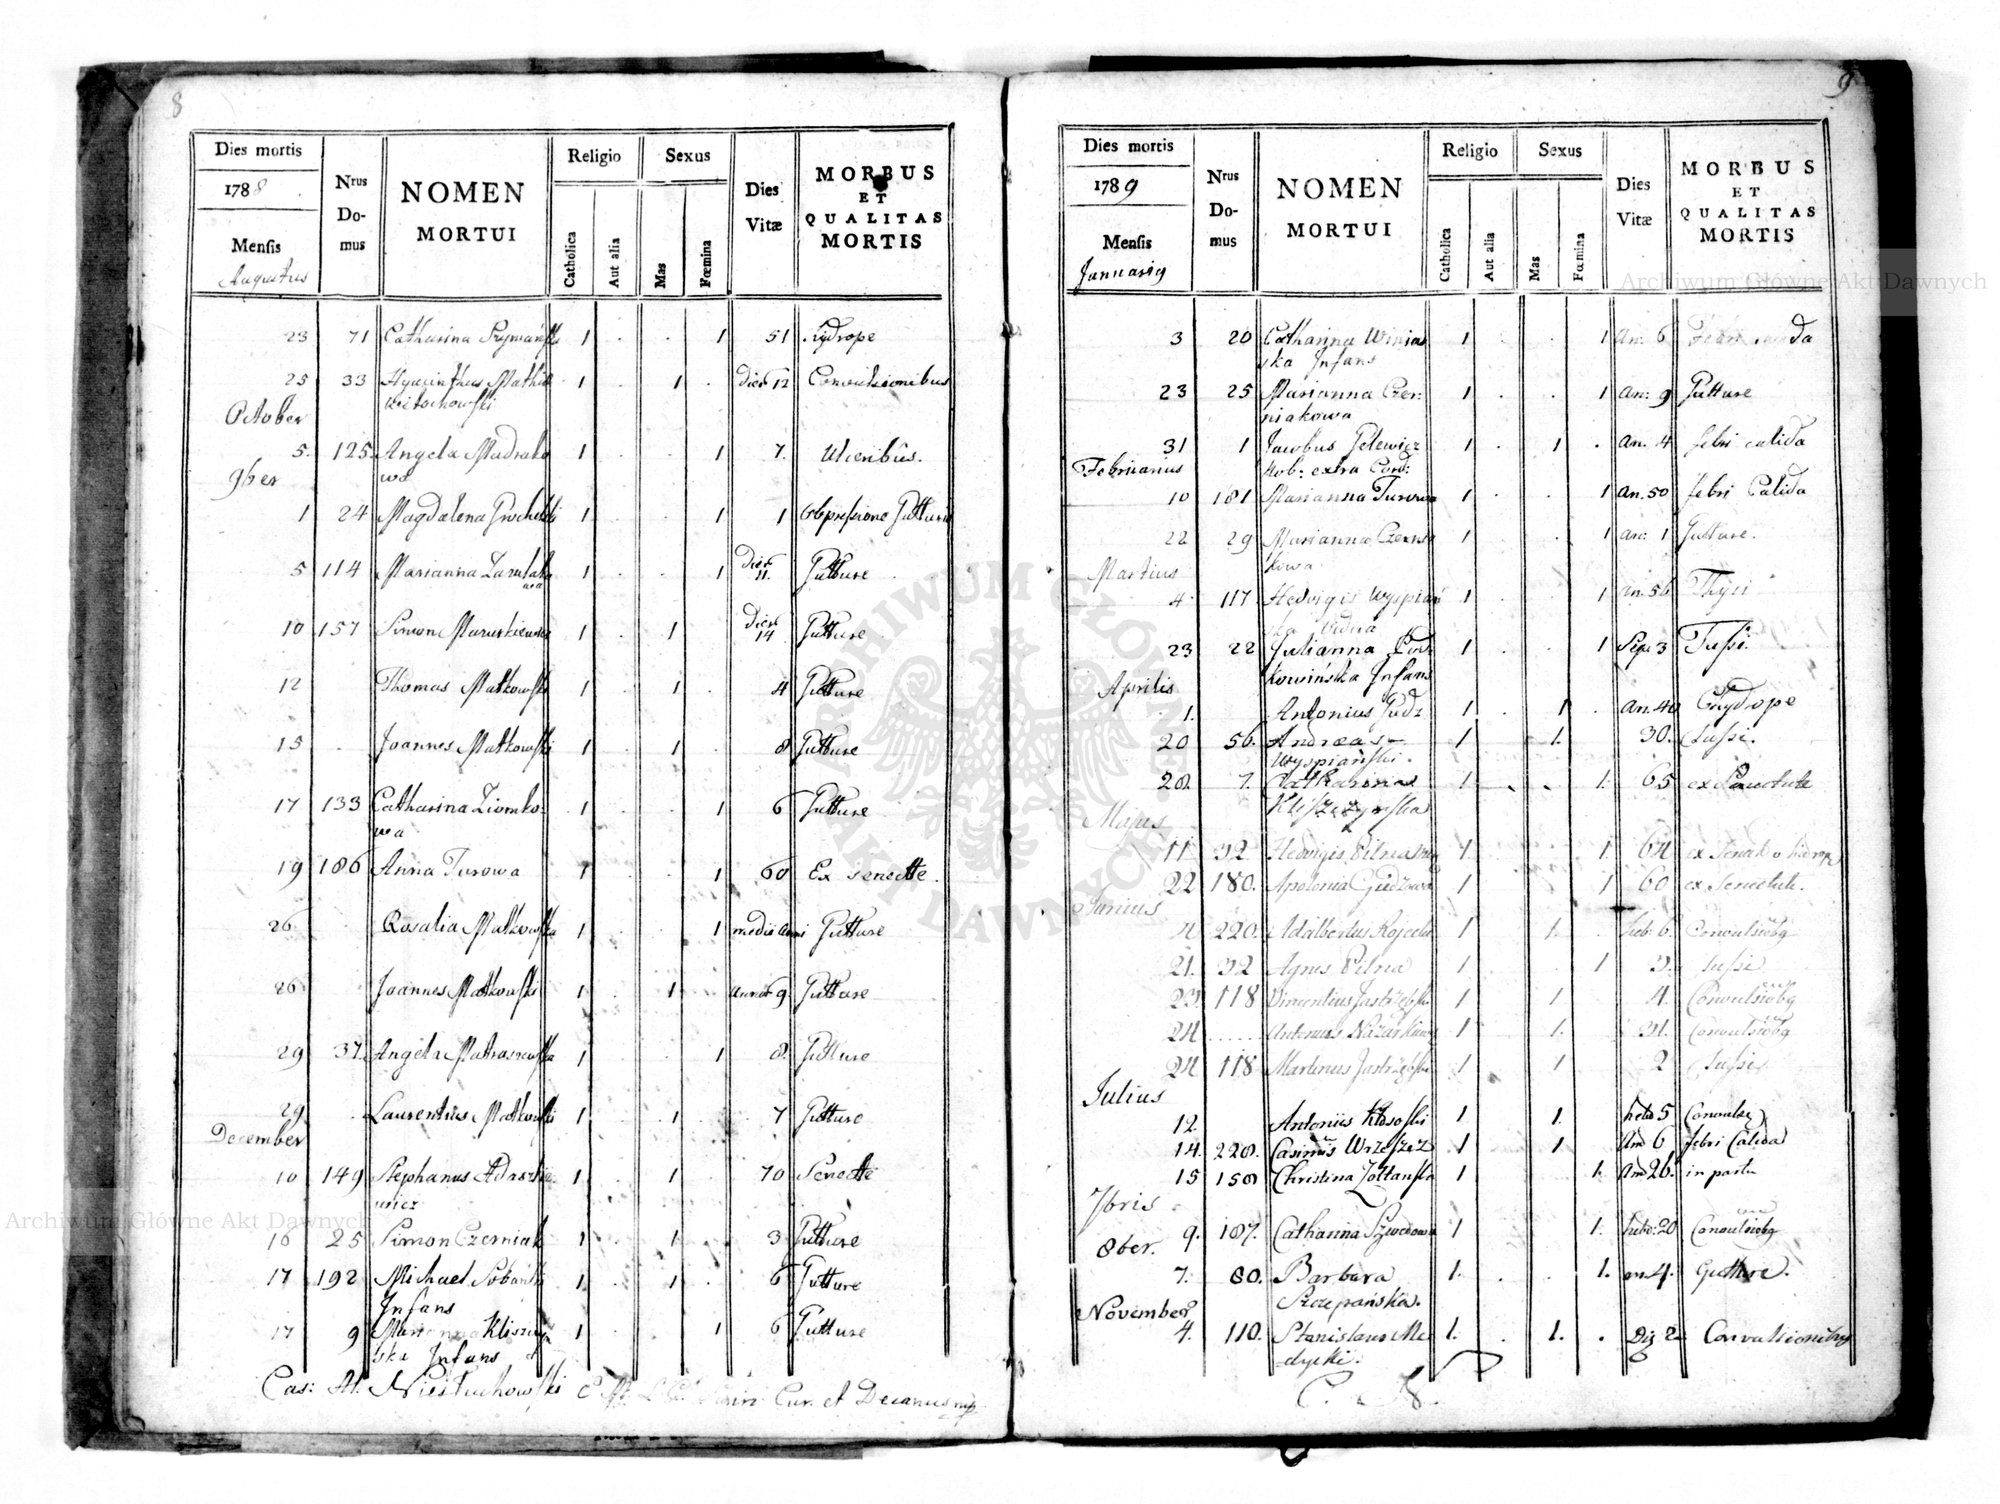 8
Dies mortis
1788.
Mensis
Augustus
Nrus
Do-
mus
NOMEN
MORTUI
Religio
Catholica
Aut alia
Sexus
Mas
Fœmina
Dies
Vitæ
MORBUS
ET
QUALITAS
MORTIS
23 71 Catharina Szymańska 1 . . 1 51 Hydrope
25 33 Hyacinthus Mathias 1 . 1 . Dier 12 Convulsionibus
October
5. 125. Angela 1 . . 1 7. Ulceribus.
wa
9ber
1 24 Magdalena 1 . . 1 1 Oppressione Gutturis
5 114 Marianna 1 . . 1 Dier 11. Gutture
wa
10 157 Simon 1 . 1 Dier 14 Gutture
12 Thomas Matkowski 1 . 1 . 4 Gutture
15 . Joannes Matkowski 1 . 1 . 8 Gutture
17 133 Catharina Ziomko- 1 . . 1 6 Gutture
wa
19 186 Anna Turowa 1 . . 1 60 Ex senectte.
26 Rosalia Matkowska 1 . . 1 medii anni Gutture
26 Joannes Matkowski 1 . 1 . annor 9. Gutture
29 37. Angela 1 . . 1 8. Gutture
29 . Laurentius Matkowski 1 . 1 . 7 Gutture
December
10 149 Stephanus 1 . 1 . 70 Senectte
wicz
16 25 Simon Czerniak 1 . 1 . 3 Gutture
17 192 Michael 1 . 1 . 6 Gutture
Infans
17 9 1 . . 1 6 Gutture
ska Infans
Cas: M. Niestuchowski Cur. et Decanus mp.
9
Dies mortis
1789
Mensis
Januariy
Nrus
Do-
mus
NOMEN
MORTUI
Religio
Catholica
Aut alia
Sexus
Mas
Fœmina
Dies
Vitæ
MORBUS
ET
QUALITAS
MORTIS
3 20 Catharina Winiar 1 . . 1 An: 6
ska Infans
23 25 Marianna Czer: 1 . . 1 an: 9 Gutture
niakowa
31 1 Jacobus 1 . 1 . an. 4 febri calida
Februarius extra Cord:
10 181 Marianna Turowa 1 . . 1 an. 50 febri Calida
22 29 Marianna 1 . . 1 an: 1 Gutture.
kowa
Martius
4. 117. Hedvigis Wyspiań 1 . . 1 an. 56 Thysi
ska Vidua
23 22 Julianna 1 . . 1 Sep. 3 Tussi.
kowińska Infans
Aprilis
1. Antonius Gudz 1 . 1 . an. 40 Hydrope
20 56. Andreas 1 1. 30. tussi.
Wyspiański.
28. 7. Catharina 1 . . 1. 65 ex Senectute
Majus
11. 32. Hedvigis Pilna 1. 1. 64
22 180. Apolonia Gudzowa 1 1 60 ex Senectute.
Junius
4 220. Adalbertus 1 1. heb: 6. Convulsiōbq
21. 32 Agnes Pilna 1 1 3. tussi
23 118 Vincentius Jastrzębski 1 1 4. Convulsiōbq
24 ..... Antonius 1 1. Convulsiōbq
24 118 Martinus Jastrzębski 1 1 2 tussi
Julius
12 Antonius Kłososki 1 1. hebd 5
14. 228. Casimis Wrzeszcz 1 1 An 6 febri Calida
15 150 Christina Żółtańska 1 1. An 26. in partu
7bris
9. 187. Catharina Szwedowa 1 1. hebd: 20 Convulsiōbq
8ber.
7. 80. Barbara 1. . . 1. an 4. Gutture.
Szczepańska.
November
4. 110. Stanislaus Me 1. . 1. . Convulsionibus
dycki.
Archiwum Główne Akt Dawnych
ARCHIWUM GŁÓWNE AKT DAWNYCH
Archiwum Główne Akt Dawnych